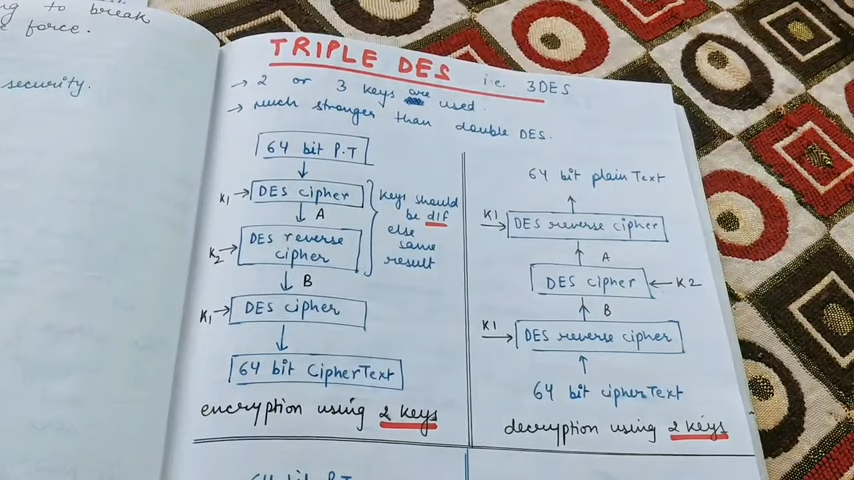 ng to break
e force.
security.
TRIPLE DES i.e. 3DES
→ 2 or 3 keys are used.
→ Much stronger than double DES.
64 bit P.T
K1 → DES cipher
A
K2 → DES reverse
cipher
B
K1 → DES cipher
64 bit CipherText
keys should
be dif
else
same
result
encryption using 2 keys
64 bit plainText
K1 → DES reverse cipher
A
DES cipher ← K2
B
K1 → DES reverse cipher
64 bit cipherText
decryption using 2 keys
64 bit P.T